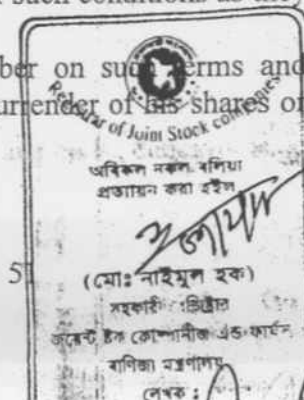 such conditions as the
ber on such terms and
urrender of his shares o
Registrar of Joint Stock Companies
অবিকল নকল বলিয়া
প্রত্যায়ন করা হইল
5
(মোঃ নাইমুল হক)
সহকারী
জয়েন্ট ষ্টক কোম্পানীজ এন্ড ফার্মস
বাণিজ্য মন্ত্রণালয়
লেখক :